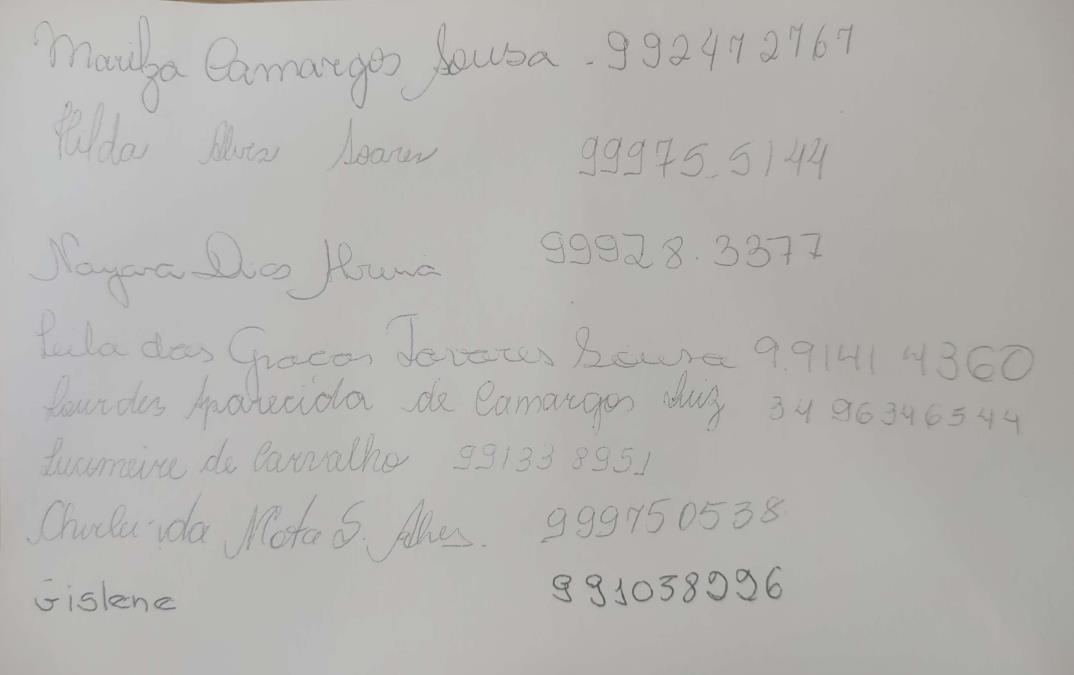 Mariza Camargos Sousa - 992472767
Hilda Alves Soares 99975.5144
Nayara Dias 99928.3377
Leila das Graças Tavares Sousa 9.9141 4360
Lourdes Aparecida de Camargos Luiz 34 96346544
Lucimeire de Carvalho 99133 8951
da Mota S. 999750538
Gislene 991038996